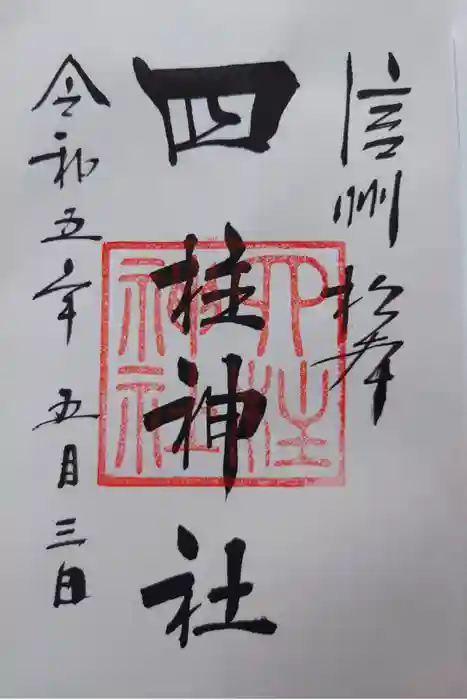 信州松本
四柱神社
令和五年 五月三日
四柱
神社